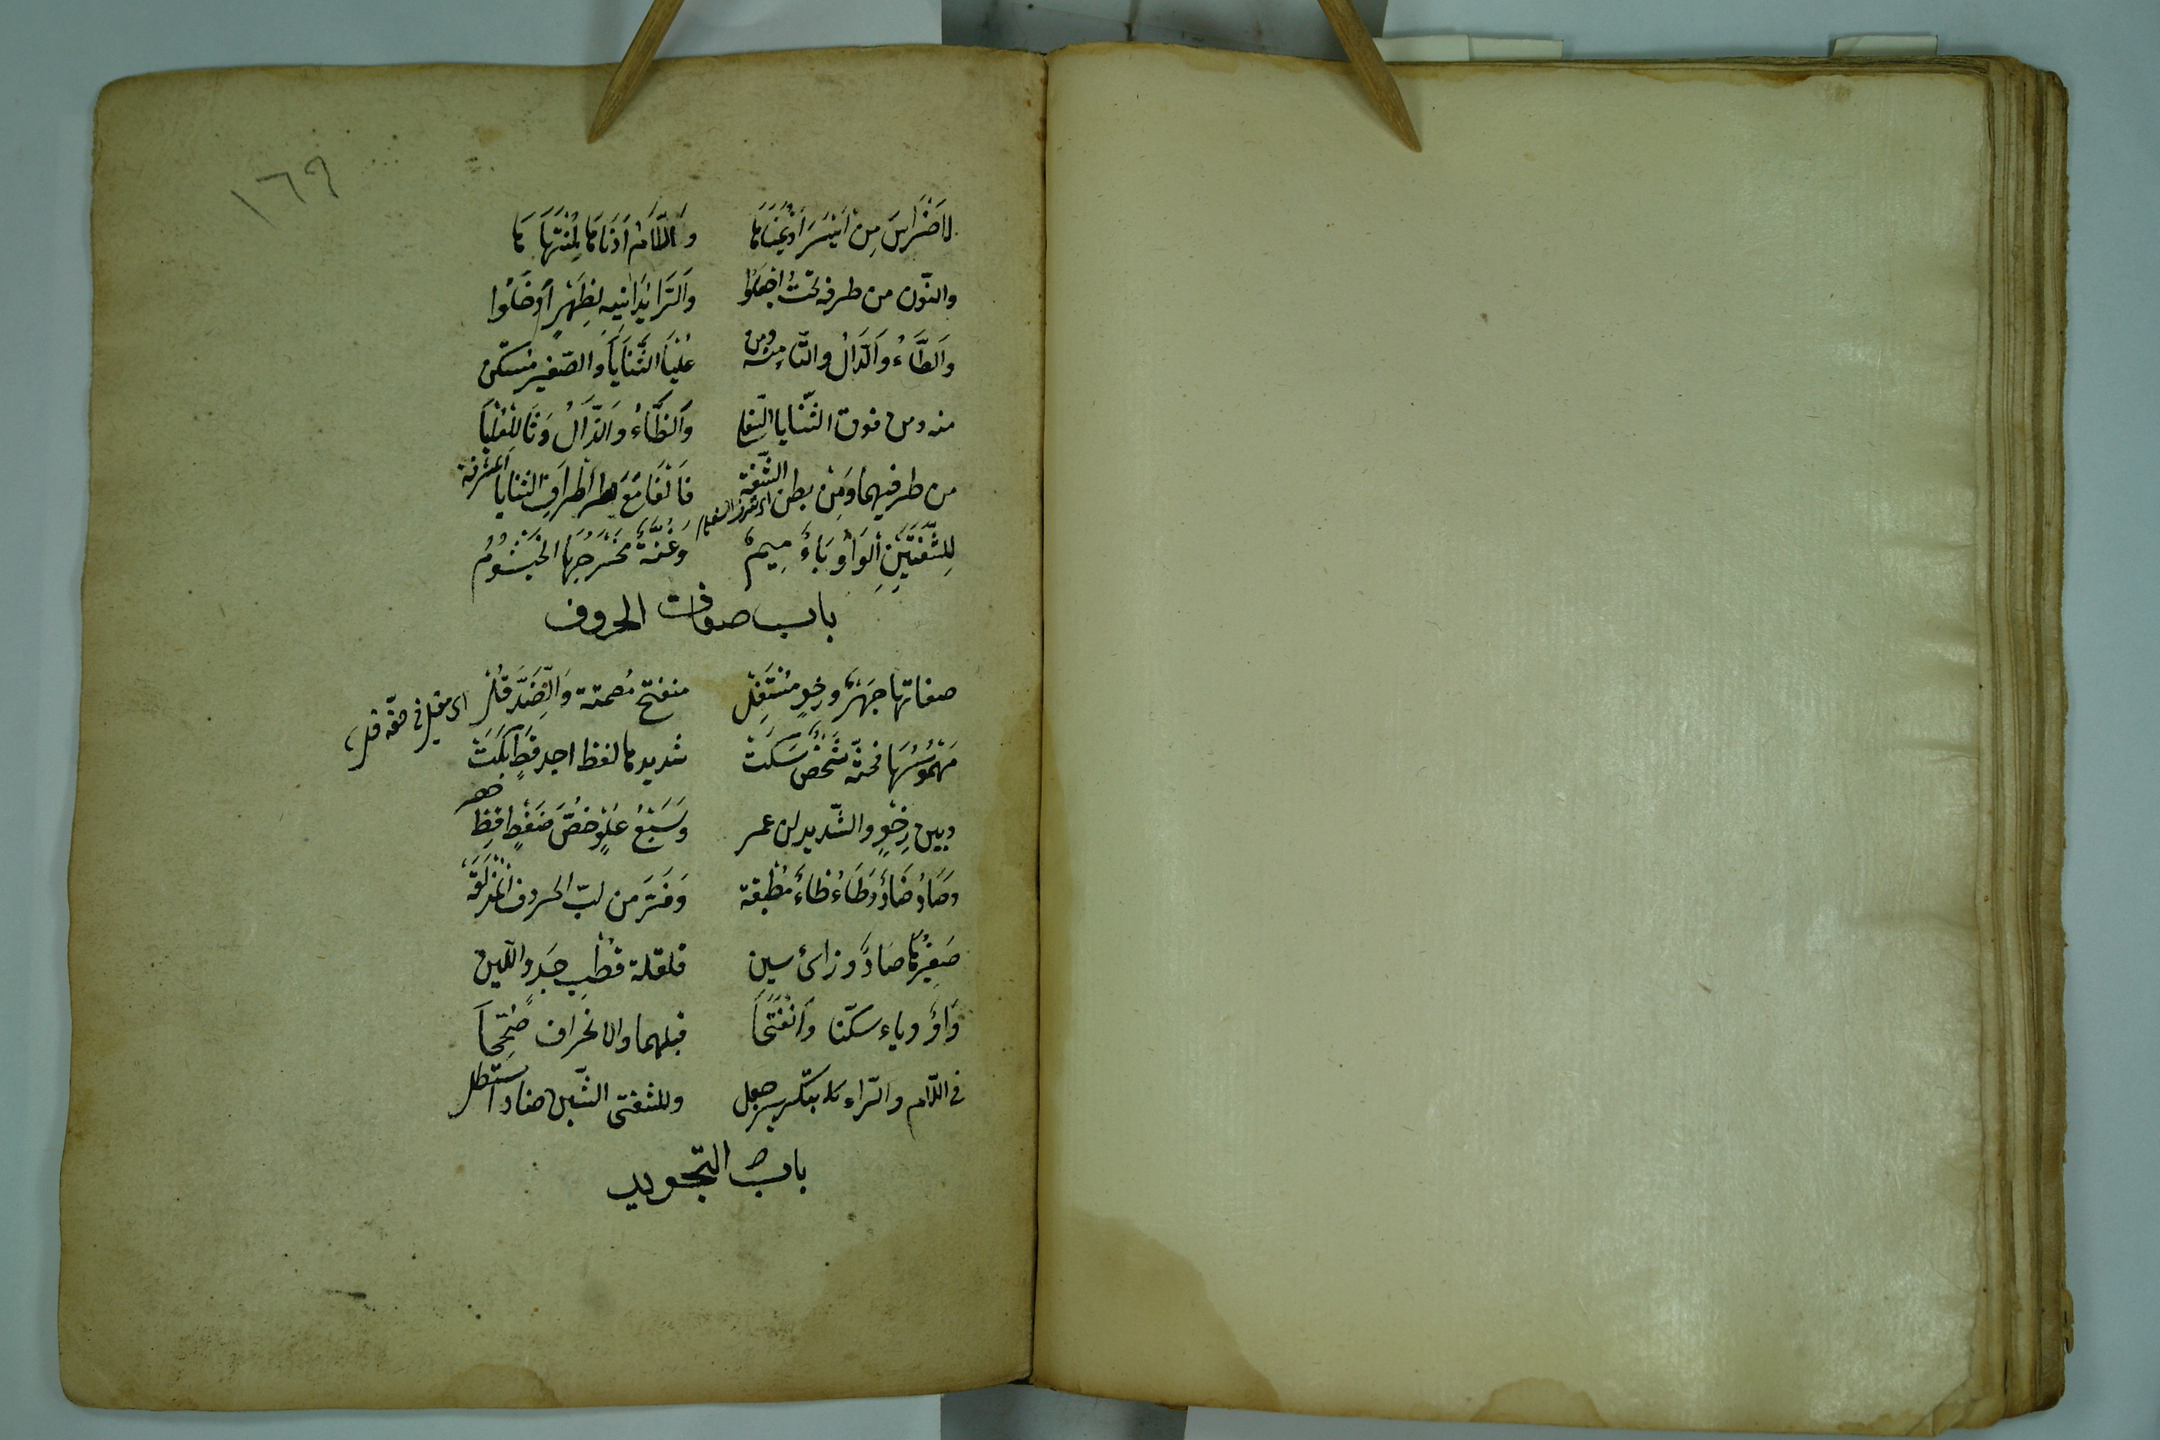 ١٦٩
لاَضْرَاسَ مِنْ اَيْسَرَ اَوْ يُمْنَاهَا وَاللاَّمُ اَدْنَاهَا لِمُنْتَهَاهَا
والنّون من طرفه تحتُ اجْعَلُوا وَالرَّا يُدَانِيهِ لِظَهْرٍ اَدْخَلُوا
وَالطَّاءُ وَالدَّالُ والتّا مِنْهُ وَمِنْ عُلْيَا الثَّنَايَا وَالصّفير مُسْتَكِنْ
منه ومن فوق الثّنايا السُّفْلَى وَالظَّاءُ وَالذَّالُ وَثَا لِلْعُلْيَا
من طرفيهما وَمِنْ بطن الشَّفَة فَالْفَا مَعَ اطْرَافِ الثنايا المُشْرِفَة
لِلشَّفَتَيْنِ اَلْوَاوُ بَاءٌ مِيمٌ وَغُنَّةٌ مَخْرَجُهَا الْخَيْشُومُ
باب صفات الحروف
صفاتها جَهْرٌ وَرِخْوٌ مُسْتَفِلْ منفتح مُصمتة وَالضِّدَّ قُلْ
مَهْمُوسُهَا فحثّه شَخْصٌ سَكَتْ شديدها لفظ اجد قَطٍ بَكَتْ
وبين رِخْوٍ والشّديد لن عمر وَسَبْعُ عُلْوٍ خُصَّ ضَغْطٍ قِظْ حصر
وصَادُ ضَادٌ وطَاءُ ظاءٌ مُطْبَقة وَفَرَّ من لبّ الحروف المُذْلَقَة
صَفِيرُهَا صَادٌ وزاىٌ سين قلقلة قُطْبُ جَدٍ واللّين
وَاوٌ وياء سكّنا وَانْفَتَحَا قبلهما والانحراف صُحِّحَا
فى اللّام والرّاء بتكرير جعل وللتفشى الشّين ضاد استطل
باب التجويد